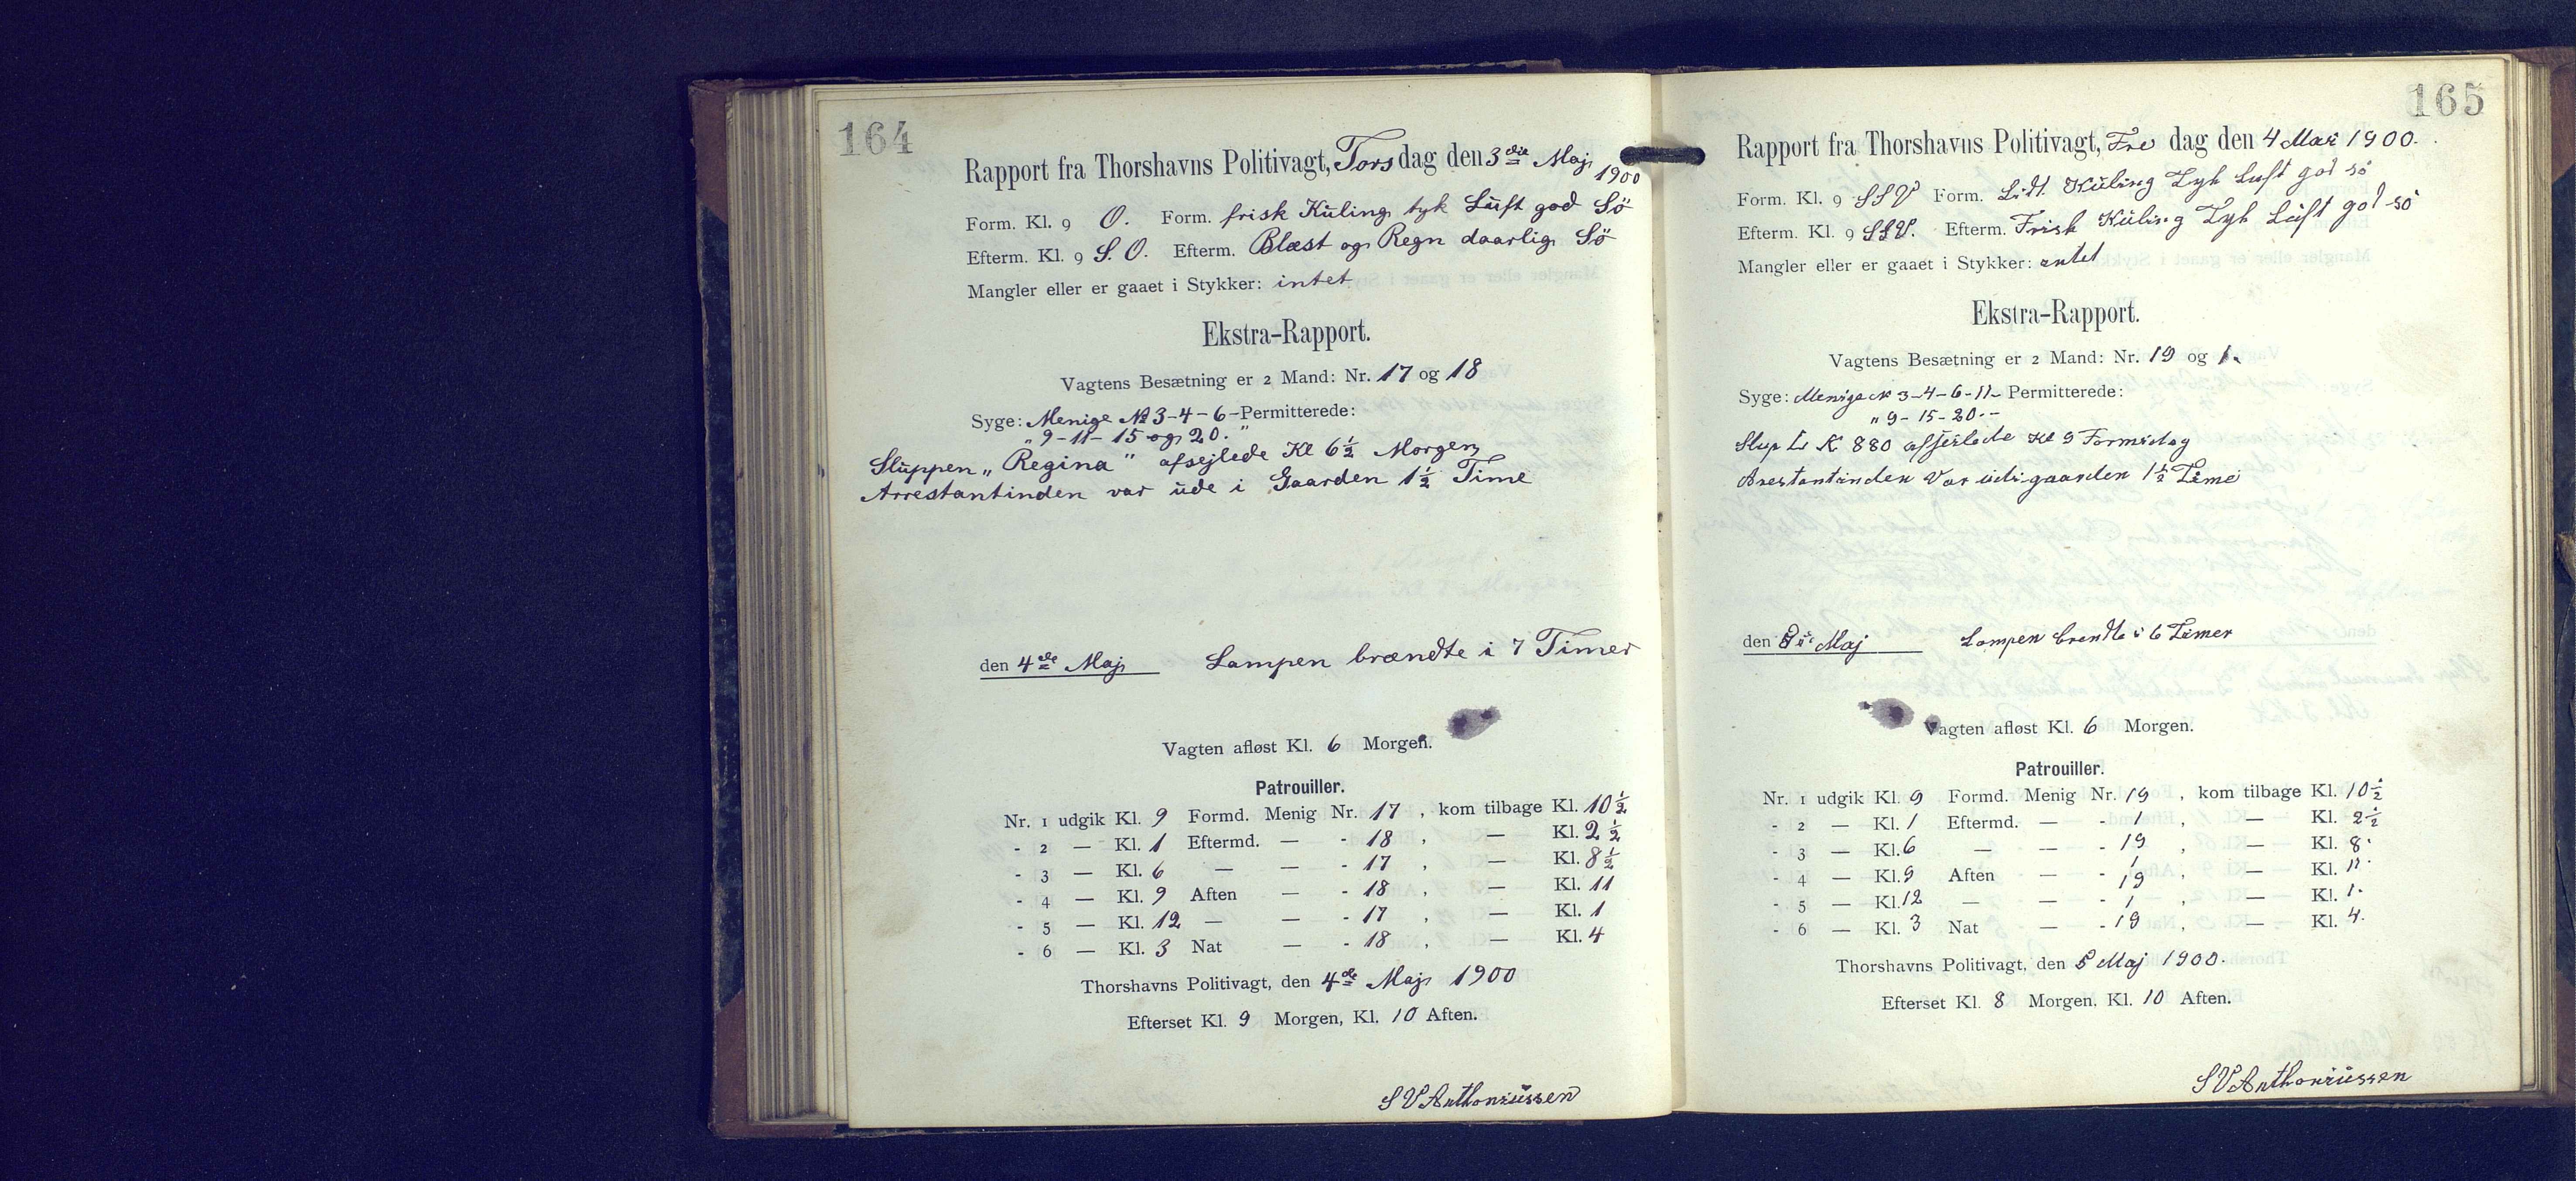 164
Rapport fra Thorshavns Politivagt, Torsdag den 3die Maj 1900
Form. Kl. 9 O. Form. frisk Kuling tyk Luft god Sö
Efterm. Kl. 9 S. O. Efterm. Blæst og Regn daarlig Sö
Mangler eller er gaaet i Stykker: intet
Ekstra-Rapport.
Vagtens Besætning er 2 Mand: Nr. 17 og 18
Syge: Menige № 3-4-6- Permitterede:
" 9-11-15 og 20. "
Sluppen „Regina" afsejlede Kl 6½ Morgen
Arrestantinden var ude i Gaarden 1½ Time
den 4de Maj Lampen brændte i 7 Timer
Vagten afløst Kl. 6 Morgen.
Patrouiller.
Nr. 1 udgik Kl. 9 Formd. Menig Nr. 17 , kom tilbage Kl. 10½
- 2 — Kl. 1 Eftermd. — - 18 , — Kl. 2½
- 3 — Kl. 6 — — - 17 , — Kl. 8½
- 4 — Kl. 9 Aften — - 18 , — Kl. 11
- 5 — Kl. 12 — — - 17 , — Kl. 1
- 6 — Kl. 3 Nat — - 18 , — Kl. 4
Thorshavns Politivagt, den 4de Maj 1900
Efterset Kl. 9 Morgen, Kl. 10 Aften.
S V Anthoniussen
165
Rapport fra Thorshavns Politivagt, Fre dag den 4 Mai 1900.
Form. Kl. 9 SSV Form. Lidt Kuling Tyk Luft god sö
Efterm. Kl. 9 SSV. Efterm. Frisk Kuling Tyk Luft god sö
Mangler eller er gaaet i Stykker: intet
Ekstra-Rapport.
Vagtens Besætning er 2 Mand: Nr. 19 og 1.
Syge: Menige № 3-4-6-11- Permitterede:
" 9-15-20.-
Slup 880 afseilede Kl 9 Formidag
Arestantinden Var udi gaarden 1½ Time
den Maj Lampen brendte i 6 Timer
Vagten afløst Kl. 6 Morgen.
Patrouiller.
Nr. 1 udgik Kl. 9 Formd. Menig Nr. 19 , kom tilbage Kl. 10½
- 2 — Kl. 1 Eftermd. — - 1 , — Kl. 2½
- 3 — Kl. 6 — — - 19 , — Kl. 8.
- 4 — Kl. 9 Aften — - 1 19 , — Kl. 11.
- 5 — Kl. 12 — — - 1 , — Kl. 1.
- 6 — Kl. 3 Nat — - 19 , — Kl. 4.
Thorshavns Politivagt, den 5 Maj 1900.
Efterset Kl. 8 Morgen, Kl. 10 Aften.
S V Anthoniussen